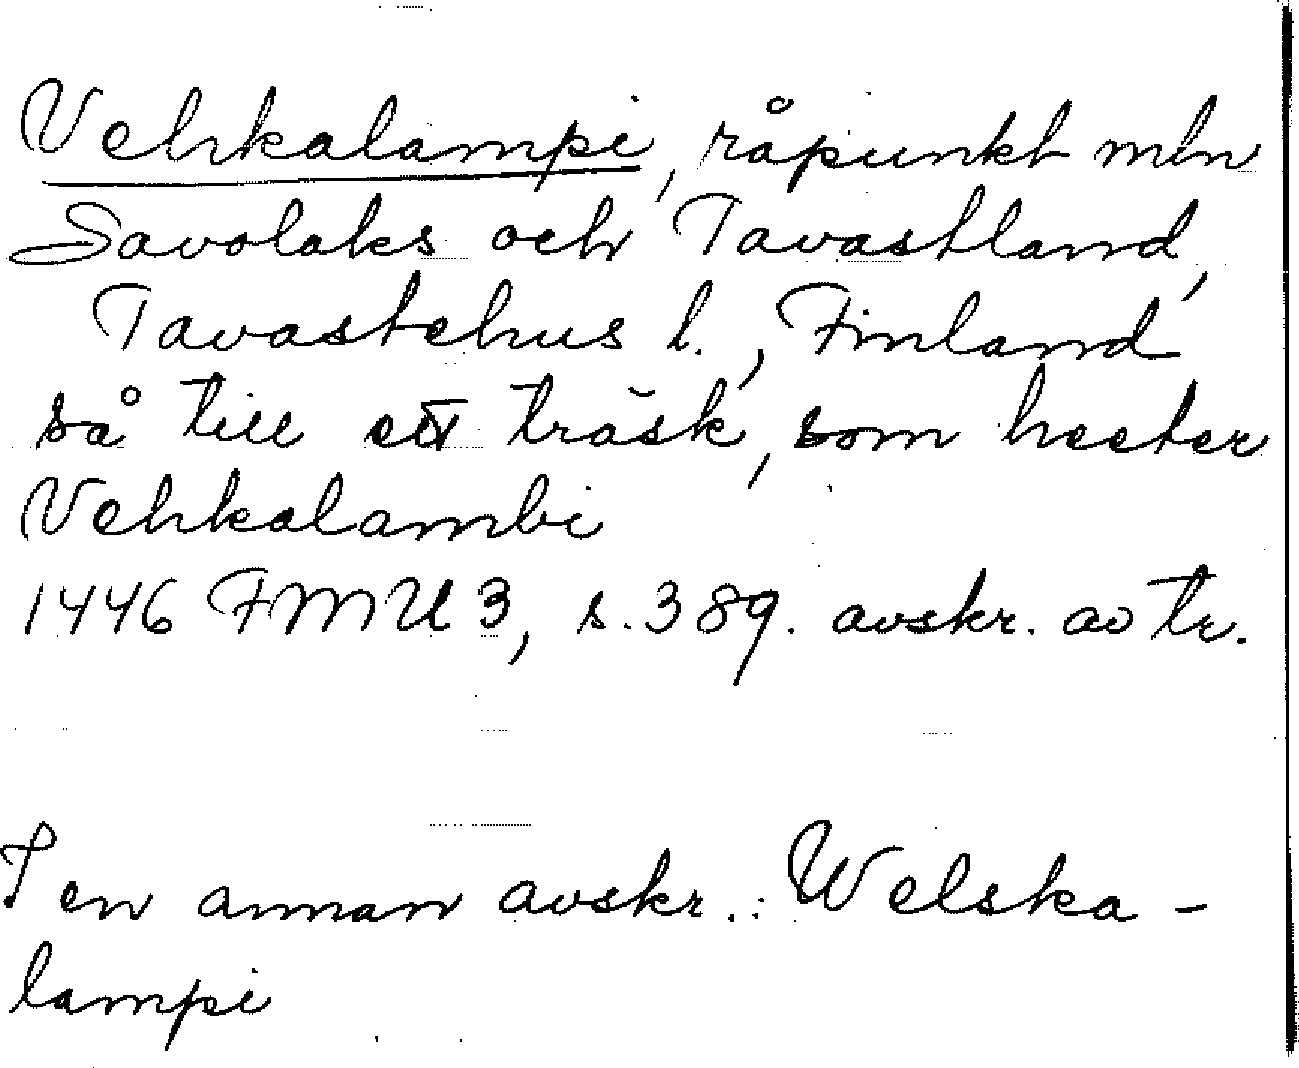 Vehkalampi, råpunkt mln
Savolaks och Tavastland,
Tavastehus l., Finland
så till ett träsk, som heeter
Vehkalambi
1446 FMU 3, s. 389. avskr. av tr.
I en annan avskr.: Welska-
lampi